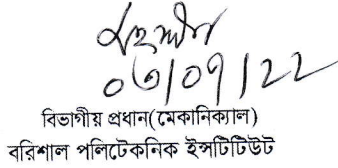 ০৩/০৭/২২
বিভাগীয় প্রধান(মেকানিক্যাল)
বরিশাল পলিটেকনিক ইন্সটিটিউট